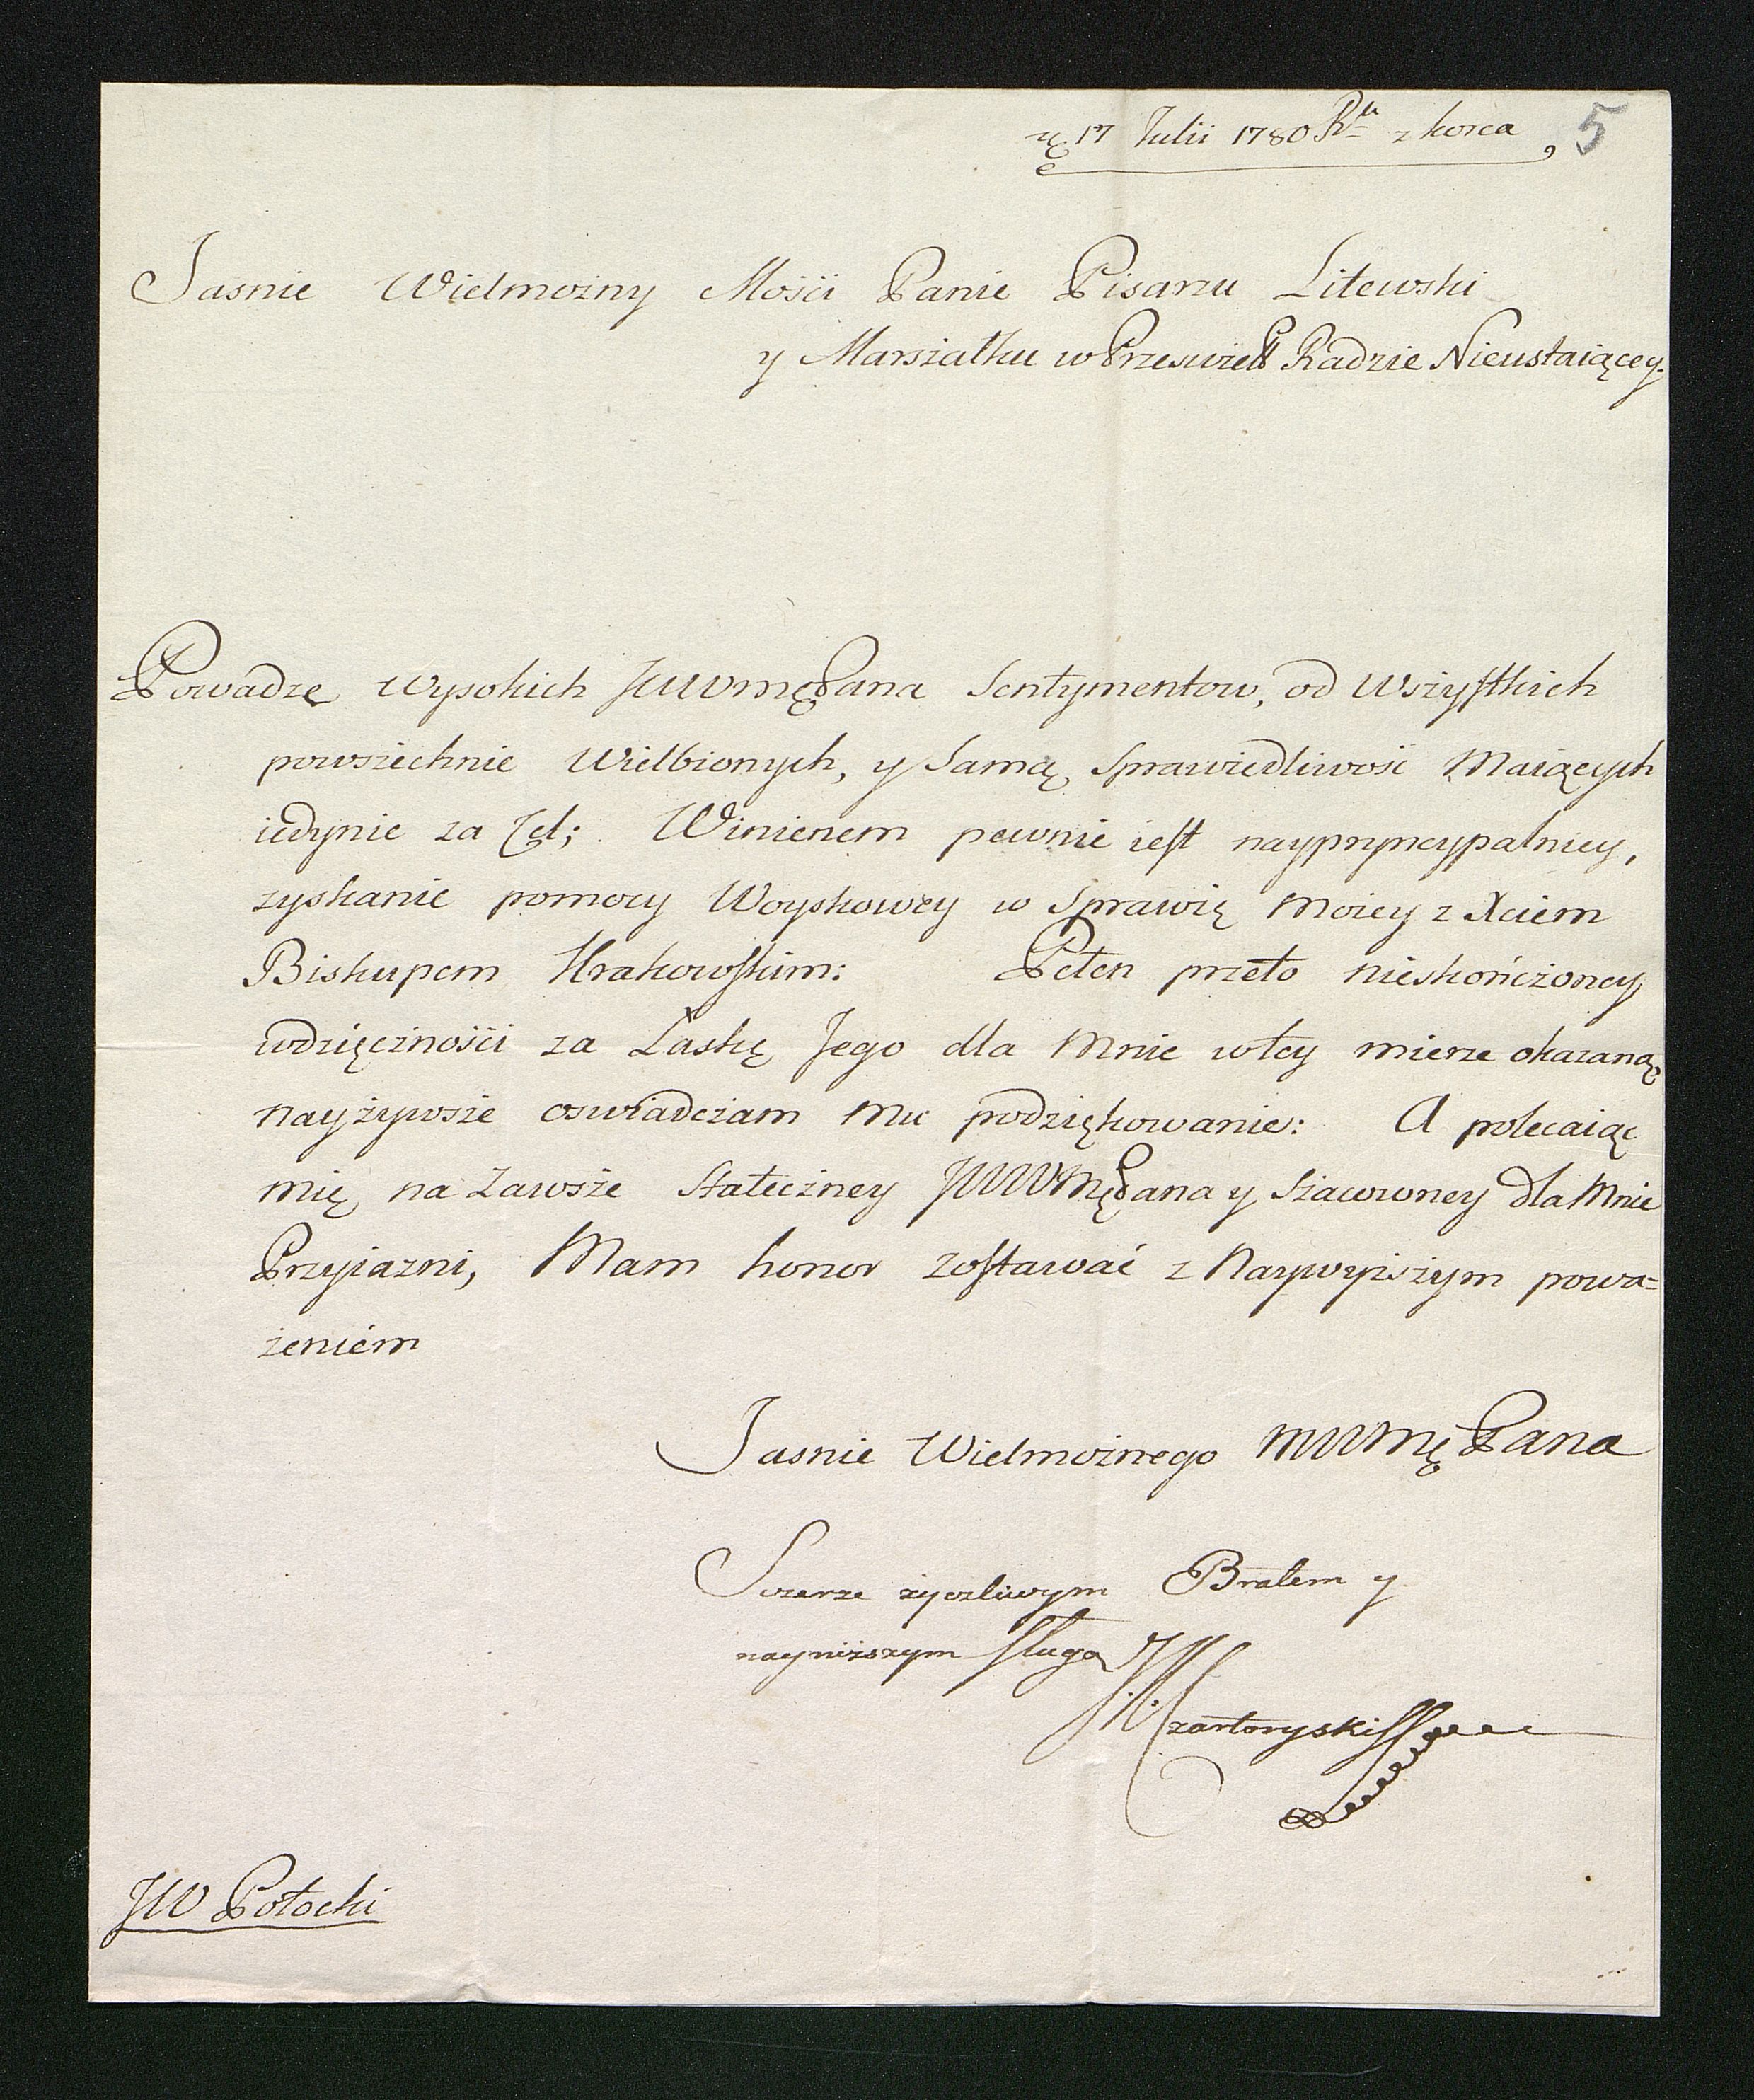 17 Julii 1780 Rku z Korca
5
Jasnie Wielmożny Mości Panie Pisarzu Litewski
y Marszałku w Przeswiett Radzie Nieustaiącey.
Powadze wysokich JWWMęPana Sentymentow, od wszystkich
powszechnie wielbionych, y samą Sprawiedliwość Maiących
iedynie za Cel; Winienem pewnie iest nayprncypalniey,
zyskanie pomocy Woyskowey w Sprawię moiey z Xciem
Biskupem Krakowskim: Pełen przeto nieskończoney
wdzięcżności za Łaskę Jego dla Mnie w tey mierze okazaną
nayżywsze oswiadcżam Mu podziękowanie: A polecaiąc
mię na Zawsze Statecżney JWWMęPana y szacowney dla Mnie
Przyiazni, Mam honor zostawać z Naywyższym powa=
żeniem
Jasnie Wielmożnego WWMęPana
Szczerze życzliwym Bratem y
nayniższym sługą
Czartoryski
JW Potocki